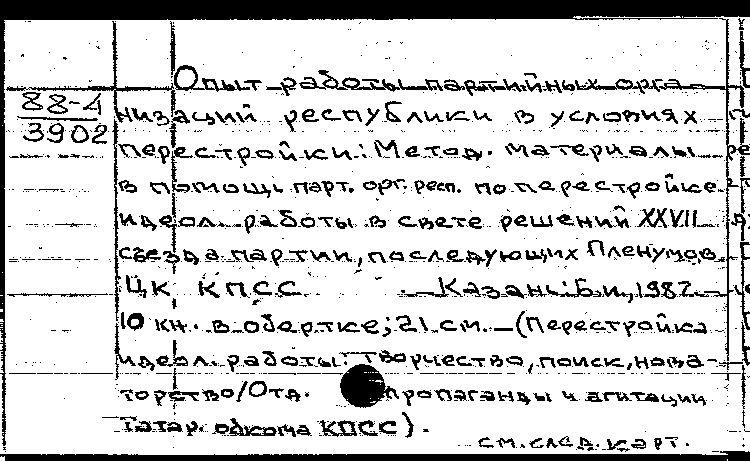 Опыт работы партийных орга-
88-4
низаций республики в условиях
3902
перестройки: Метод. материалы
в помощь парт. орг. респ. по перестройке
идеол. работы в свете решений XXVII
съезда партии, последующих Пленумов
ЦК КПСС. — Казань: Б.и., 1987. —
10 кн. в обертке; 21 см. — (Перестройка
идеол. работы: творчество, поиск, нова-
торство/Отд. пропаганды и агитации
Татар. обкома КПСС).
см. след. карт.